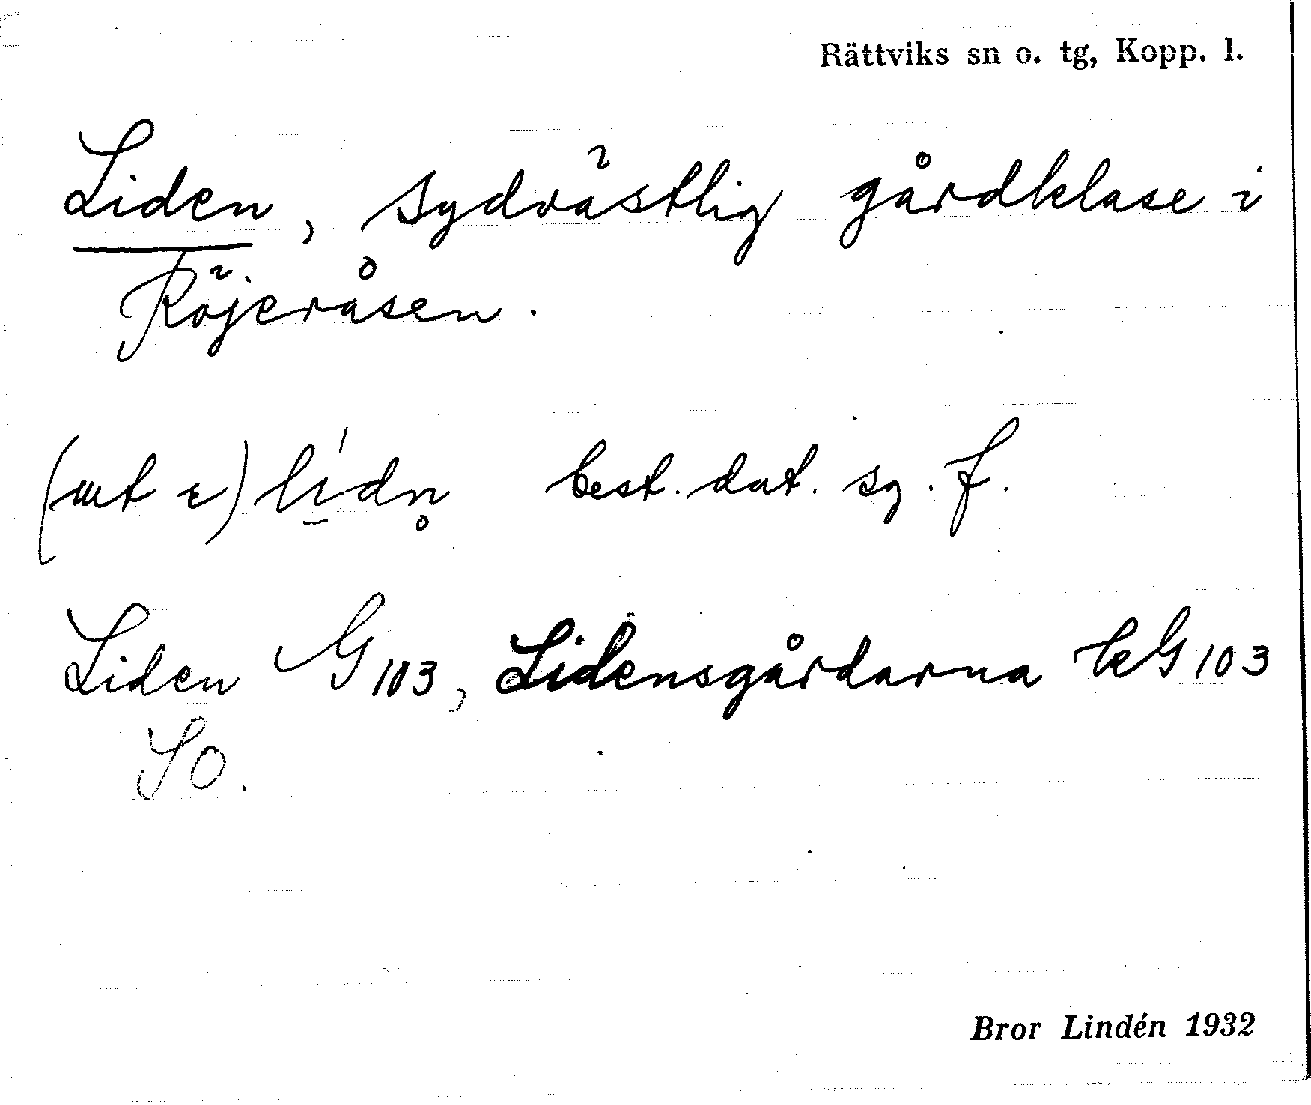 Rättviks sn o. tg, Kopp. l.
Liden, sydvästlig gårdklase i
Röjeråsen.
lí̱dn̥ best. dat. sg. f.
Liden G 103, Lidensgårdarna G 103
SO.
Bror Lindén 1932